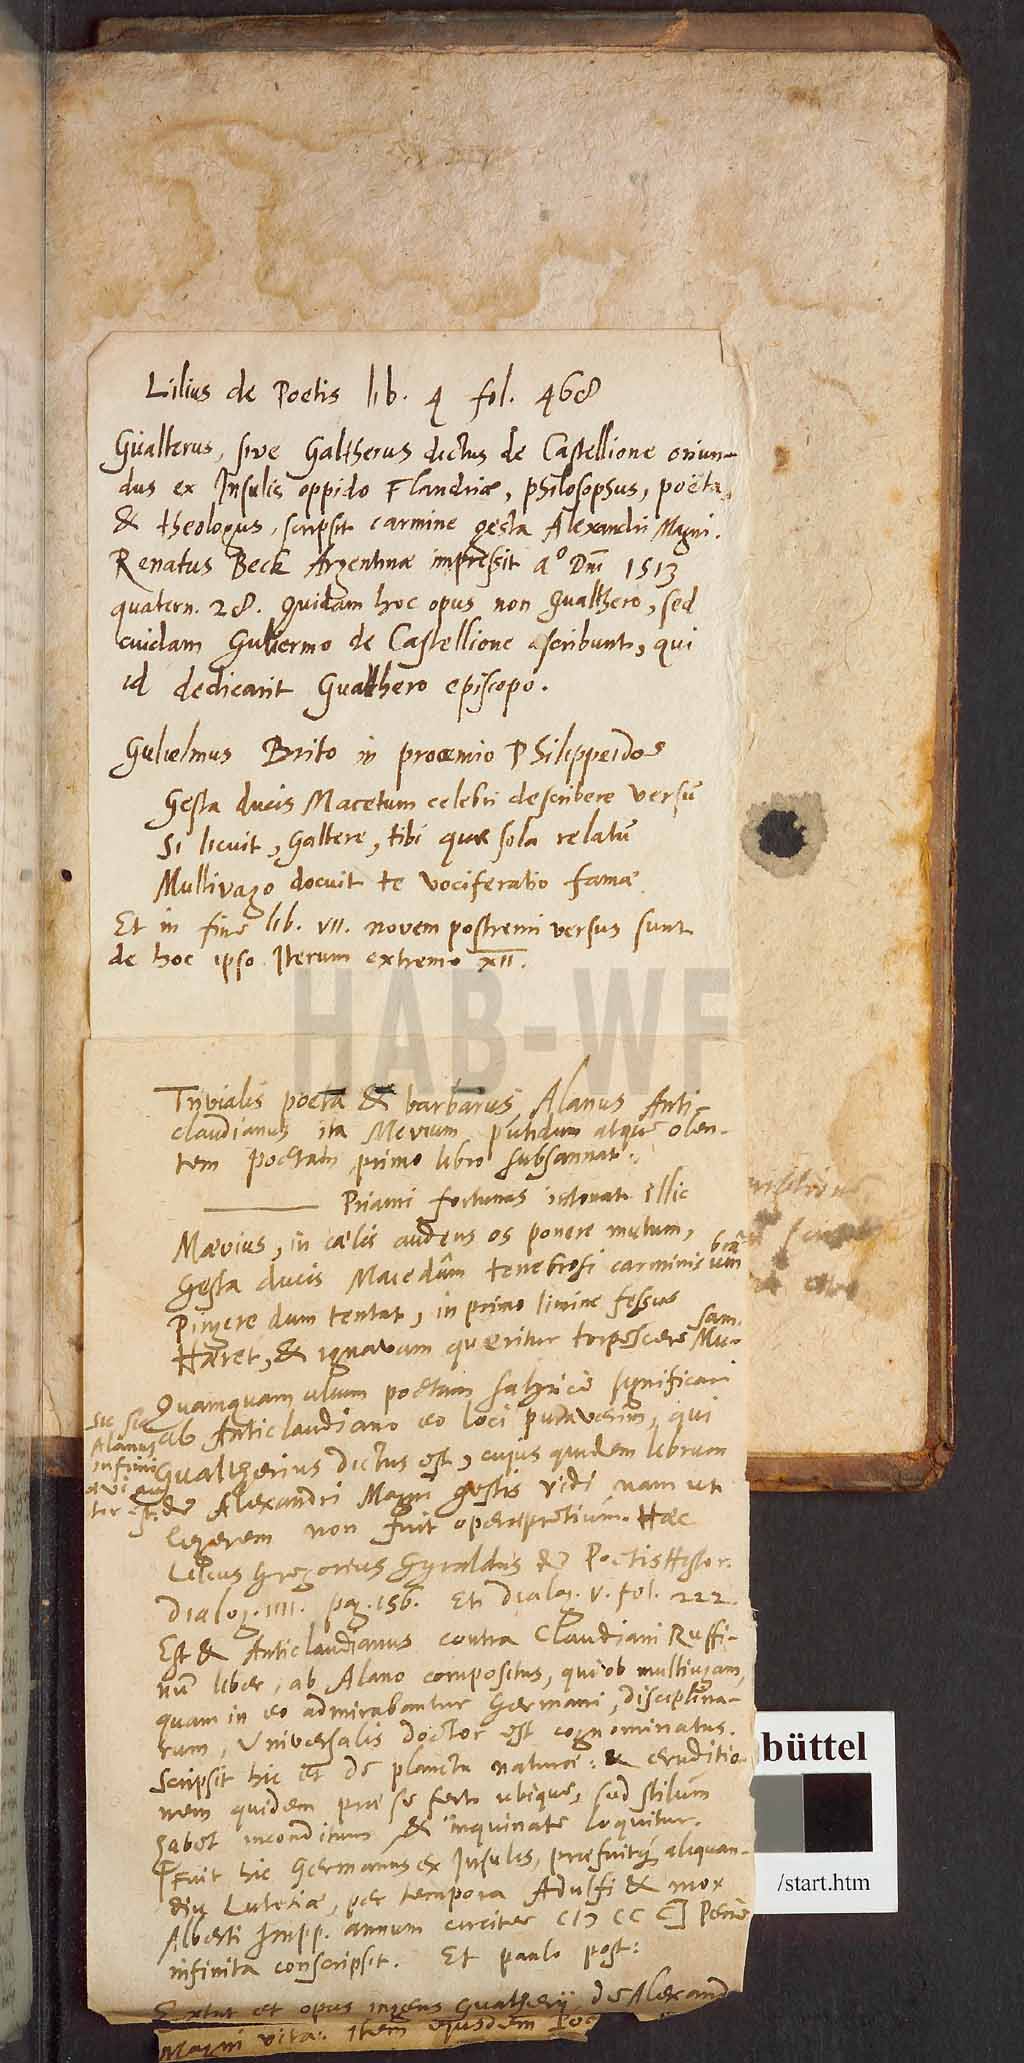 Lilius de Poetis lib. 4 fol. 468
Gualterus, sive Galtherus dictus de Castellione oriun-
dus ex Insulis oppido Flandriæ, philosophus, poëta,
& theologus, scripsit carmine gesta Alexandri Magni.
Renatus Beck Argentinæ impressit a° Dni 1513
quatern. 28. Quidam hoc opus non Gualthero, sed
cuidam Guliermo de Castellione ascribunt, qui
id dedicarit Gualthero episcopo.
Gulielmus Brito in proœmio Philippeidos
Gesta ducis Macetum celebri describere versu
Si licuit, Galtere, tibi quæ sola relatu
Multivago docuit te vociferatio famæ
Et in fine lib. VII. novem postremi versus sunt
de hoc ipso Iterum extremo XII.
HAB-WF
Trivialis poeta & barbarus Alanus Anti-
claudianus ita Mevium putidum atque olen-
tem poetam primo libro subsannat:
Priami fortunas intonat illic
Mævius, in cælis audens os ponere mutum,
Gesta ducis Macedûm tenebrosi carminis umbrâ
Pingere dum tentat, in primo limine fessus
Hæret, & ignavam queritur torpescere Musam.
Quamquam alium poetam satyrice significari
ab Anticlaudiano eo loci putaverim, qui
Gualtherius dictus est, cujus quidem librum
de Alexandri Magni gestis vidi, nam ut
legerem non fuit operæpretium. Hæc
Sic
Alanus
infimi
ævi au
tor est.
Lilius Gregorius Gyraldus de Poetis Histor.
Dialog. IIII. pag. 156. Et Dialog. V. fol. 222.
Est & Anticlaudianus contra Claudiani Ruffi-
nū liber, ab Alano compositus, qui ob multiugam,
quam in eo admirabantur Germani, disciplina-
rum, Universalis doctor est cognominatus.
Scripsit hic et de planctu naturæ: & eruditio-
nem quidem præ se fert ubique, sed stilum
habet inconditum & inquinate loquitur.
Fuit hic Germanus ex Insulis, præfuitq aliquan-
diu Lutetiæ, per tempora Adulfi & mox
Alberti Impp. annum circiter CIↃ CC C] Pene
infinita conscripsit. Et paulo post:
Extat et opus ingens Gualtherij de Alexand
Magni vita: Item ejusdem
büttel
/start.htm